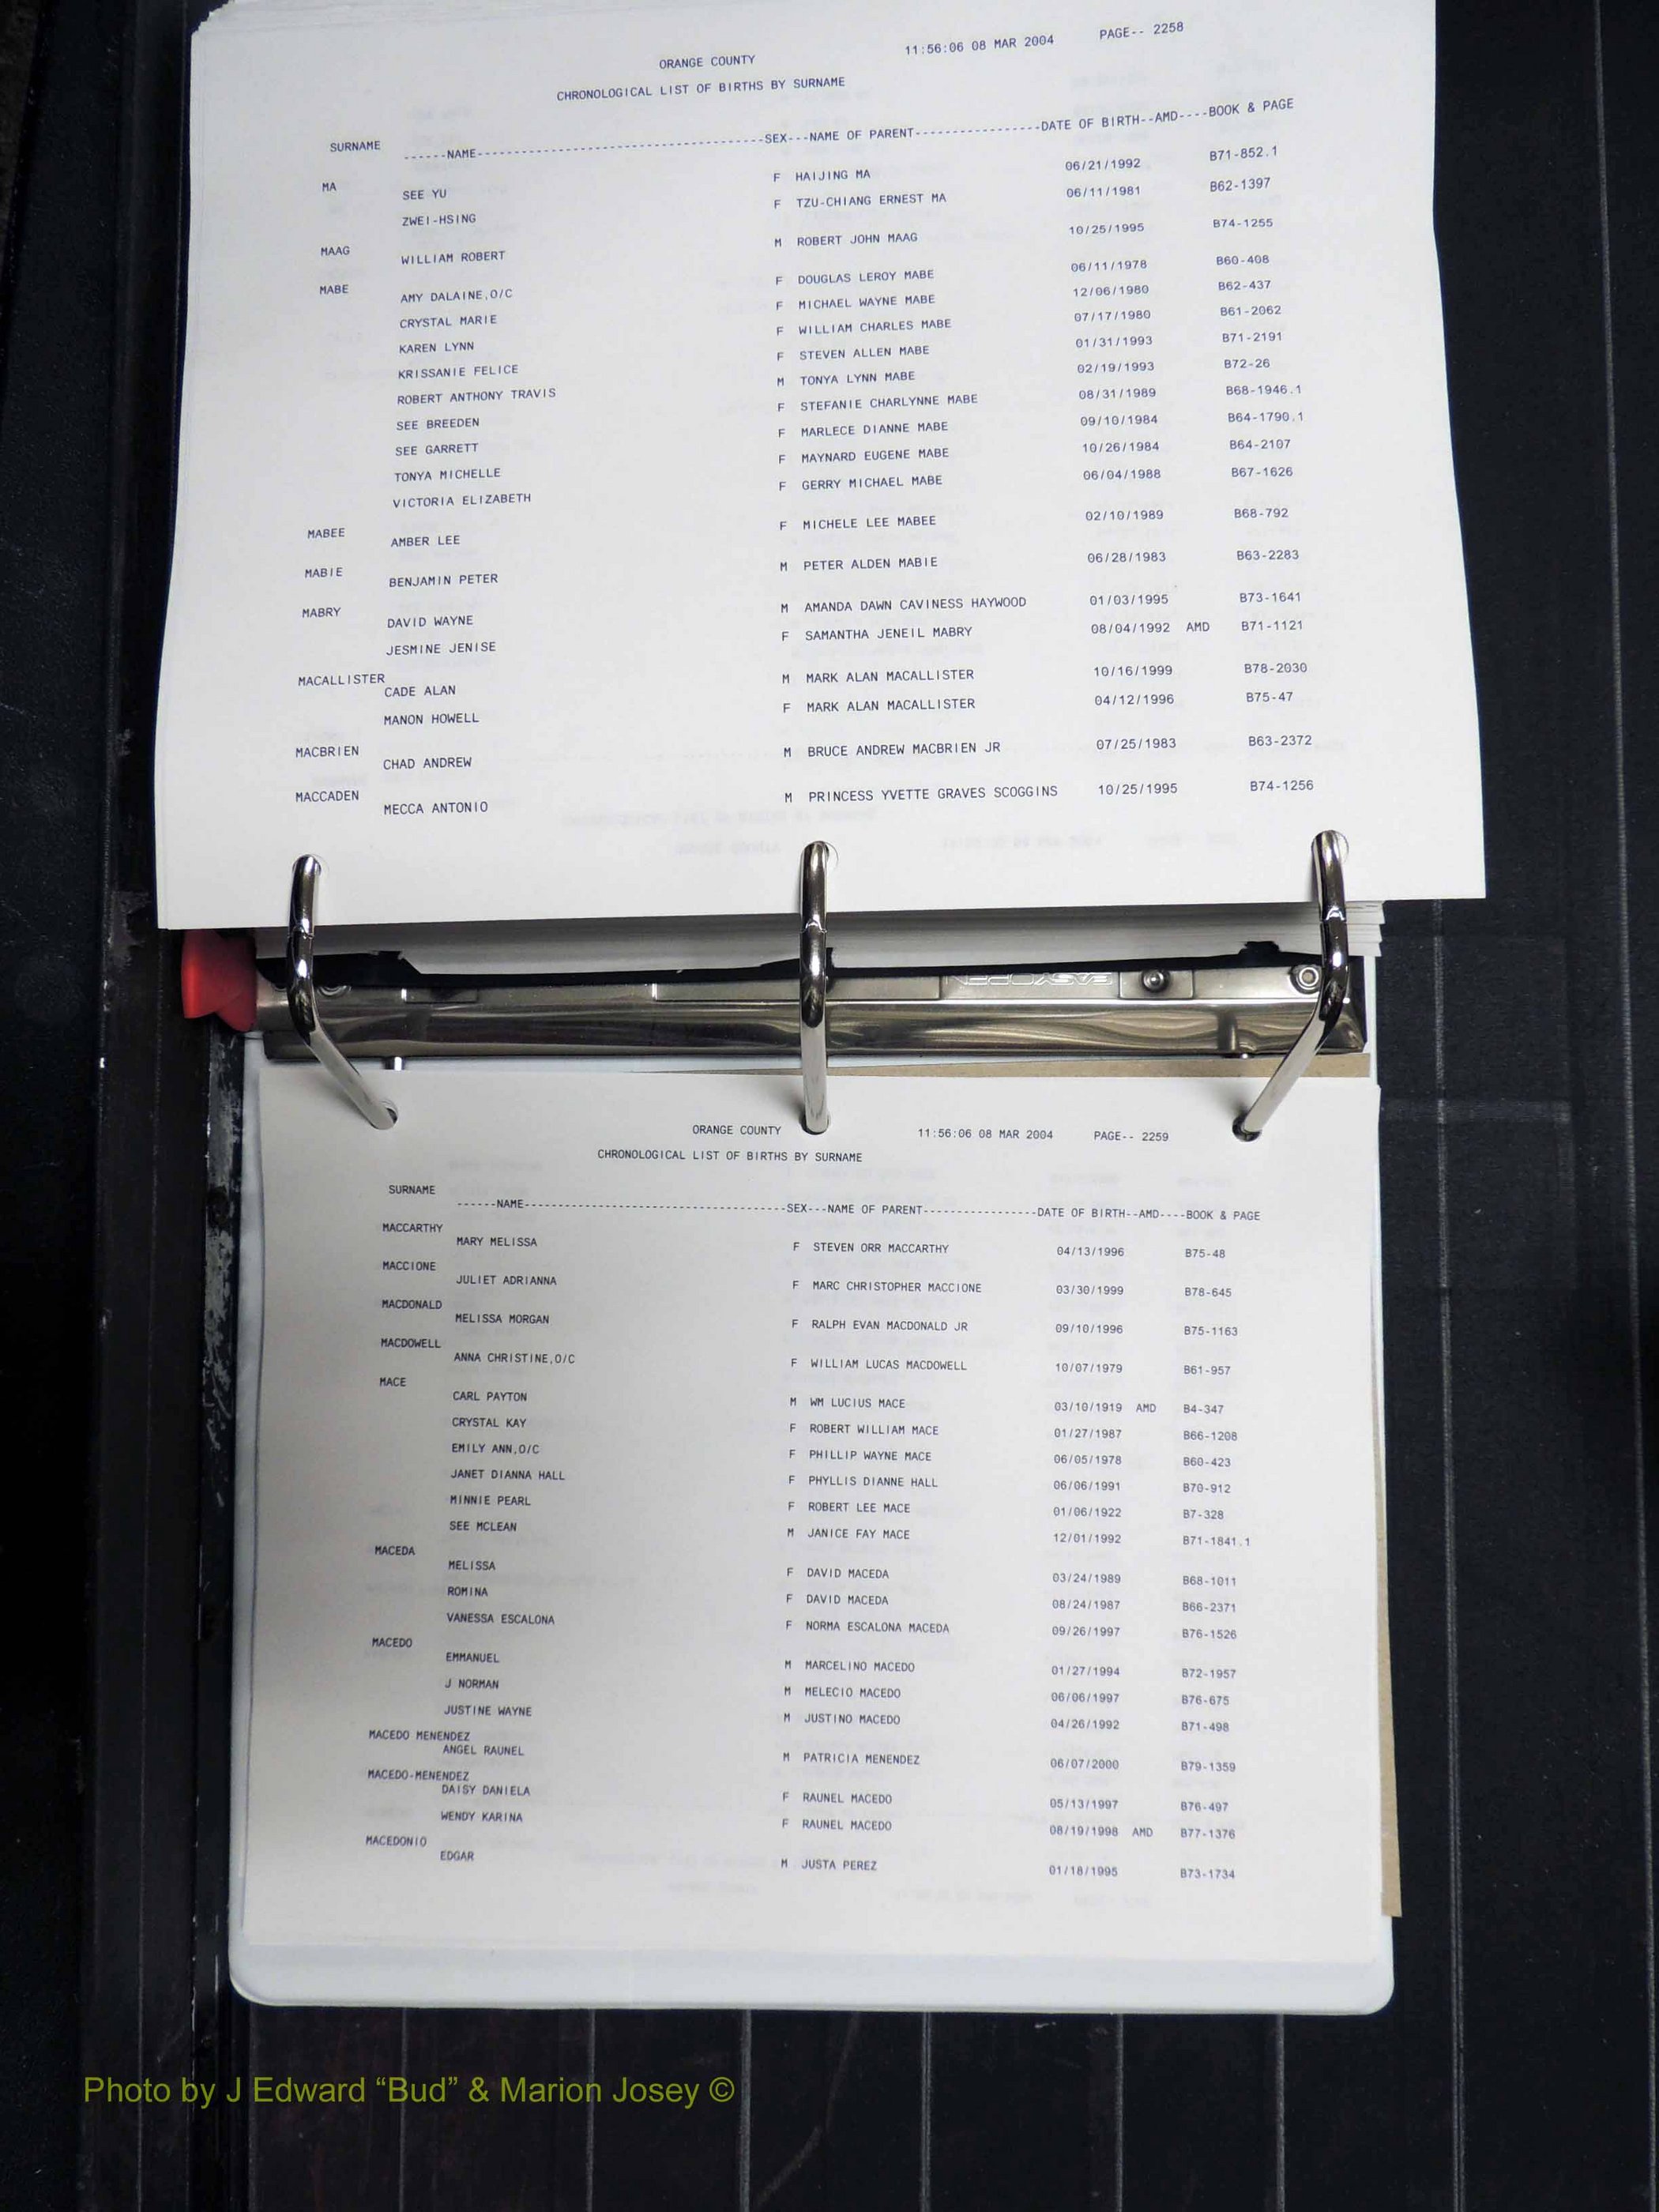 ORANGE COUNTY 11:56:06 08 MAR 2004 PAGE-- 2258
CHRONOLOGICAL LIST OF BIRTHS BY SURNAME
SURNAME ------NAME------------------------------------------SEX---NAME OF PARENT------------------DATE OF BIRTH--AMD----BOOK & PAGE
MA
SEE YU F HAIJING MA 06/21/1992 B71-852.1
ZWEI-HSING F TZU-CHIANG ERNEST MA 06/11/1981 B62-1397
MAAG
WILLIAM ROBERT M ROBERT JOHN MAAG 10/25/1995 B74-1255
MABE
AMY DALAINE,O/C F DOUGLAS LEROY MABE 06/11/1978 B60-408
CRYSTAL MARIE F MICHAEL WAYNE MABE 12/06/1980 B62-437
KAREN LYNN F WILLIAM CHARLES MABE 07/17/1980 B61-2062
KRISSANIE FELICE F STEVEN ALLEN MABE 01/31/1993 B71-2191
ROBERT ANTHONY TRAVIS M TONYA LYNN MABE 02/19/1993 B72-26
SEE BREEDEN F STEFANIE CHARLYNNE MABE 08/31/1989 B68-1946.1
SEE GARRETT F MARLECE DIANNE MABE 09/10/1984 B64-1790.1
TONYA MICHELLE F MAYNARD EUGENE MABE 10/26/1984 B64-2107
VICTORIA ELIZABETH F GERRY MICHAEL MABE 06/04/1988 B67-1626
MABEE
AMBER LEE F MICHELE LEE MABEE 02/10/1989 B68-792
MABIE
BENJAMIN PETER M PETER ALDEN MABIE 06/28/1983 B63-2283
MABRY
DAVID WAYNE M AMANDA DAWN CAVINESS HAYWOOD 01/03/1995 B73-1641
JESMINE JENISE F SAMANTHA JENEIL MABRY 08/04/1992 AMD B71-1121
MACALLISTER
CADE ALAN M MARK ALAN MACALLISTER 10/16/1999 B78-2030
MANON HOWELL F MARK ALAN MACALLISTER 04/12/1996 B75-47
MACBRIEN
CHAD ANDREW M BRUCE ANDREW MACBRIEN JR 07/25/1983 B63-2372
MACCADEN
MECCA ANTONIO M PRINCESS YVETTE GRAVES SCOGGINS 10/25/1995 B74-1256
EASYOPEN
ORANGE COUNTY 11:56:06 08 MAR 2004 PAGE-- 2259
CHRONOLOGICAL LIST OF BIRTHS BY SURNAME
SURNAME
------NAME------------------------------------------SEX---NAME OF PARENT------------------DATE OF BIRTH--AMD----BOOK & PAGE
MACCARTHY
MARY MELISSA F STEVEN ORR MACCARTHY 04/13/1996 B75-48
MACCIONE
JULIET ADRIANNA F MARC CHRISTOPHER MACCIONE 03/30/1999 B78-645
MACDONALD
MELISSA MORGAN F RALPH EVAN MACDONALD JR 09/10/1996 B75-1163
MACDOWELL
ANNA CHRISTINE,O/C F WILLIAM LUCAS MACDOWELL 10/07/1979 B61-957
MACE
CARL PAYTON M WM LUCIUS MACE 03/10/1919 AMD B4-347
CRYSTAL KAY F ROBERT WILLIAM MACE 01/27/1987 B66-1208
EMILY ANN,O/C F PHILLIP WAYNE MACE 06/05/1978 B60-423
JANET DIANNA HALL F PHYLLIS DIANNE HALL 06/06/1991 B70-912
MINNIE PEARL F ROBERT LEE MACE 01/06/1922 B7-328
SEE MCLEAN M JANICE FAY MACE 12/01/1992 B71-1841.1
MACEDA
MELISSA F DAVID MACEDA 03/24/1989 B68-1011
ROMINA F DAVID MACEDA 08/24/1987 B66-2371
VANESSA ESCALONA F NORMA ESCALONA MACEDA 09/26/1997 B76-1526
MACEDO
EMMANUEL M MARCELINO MACEDO 01/27/1994 B72-1957
J NORMAN M MELECIO MACEDO 06/06/1997 B76-675
JUSTINE WAYNE M JUSTINO MACEDO 04/26/1992 B71-498
MACEDO MENENDEZ
ANGEL RAUNEL M PATRICIA MENENDEZ 06/07/2000 B79-1359
MACEDO-MENENDEZ
DAISY DANIELA F RAUNEL MACEDO 05/13/1997 B76-497
WENDY KARINA F RAUNEL MACEDO 08/19/1998 AMD B77-1376
MACEDONIO
EDGAR M JUSTA PEREZ 01/18/1995 B73-1734
Photo by J Edward “Bud” & Marion Josey ©